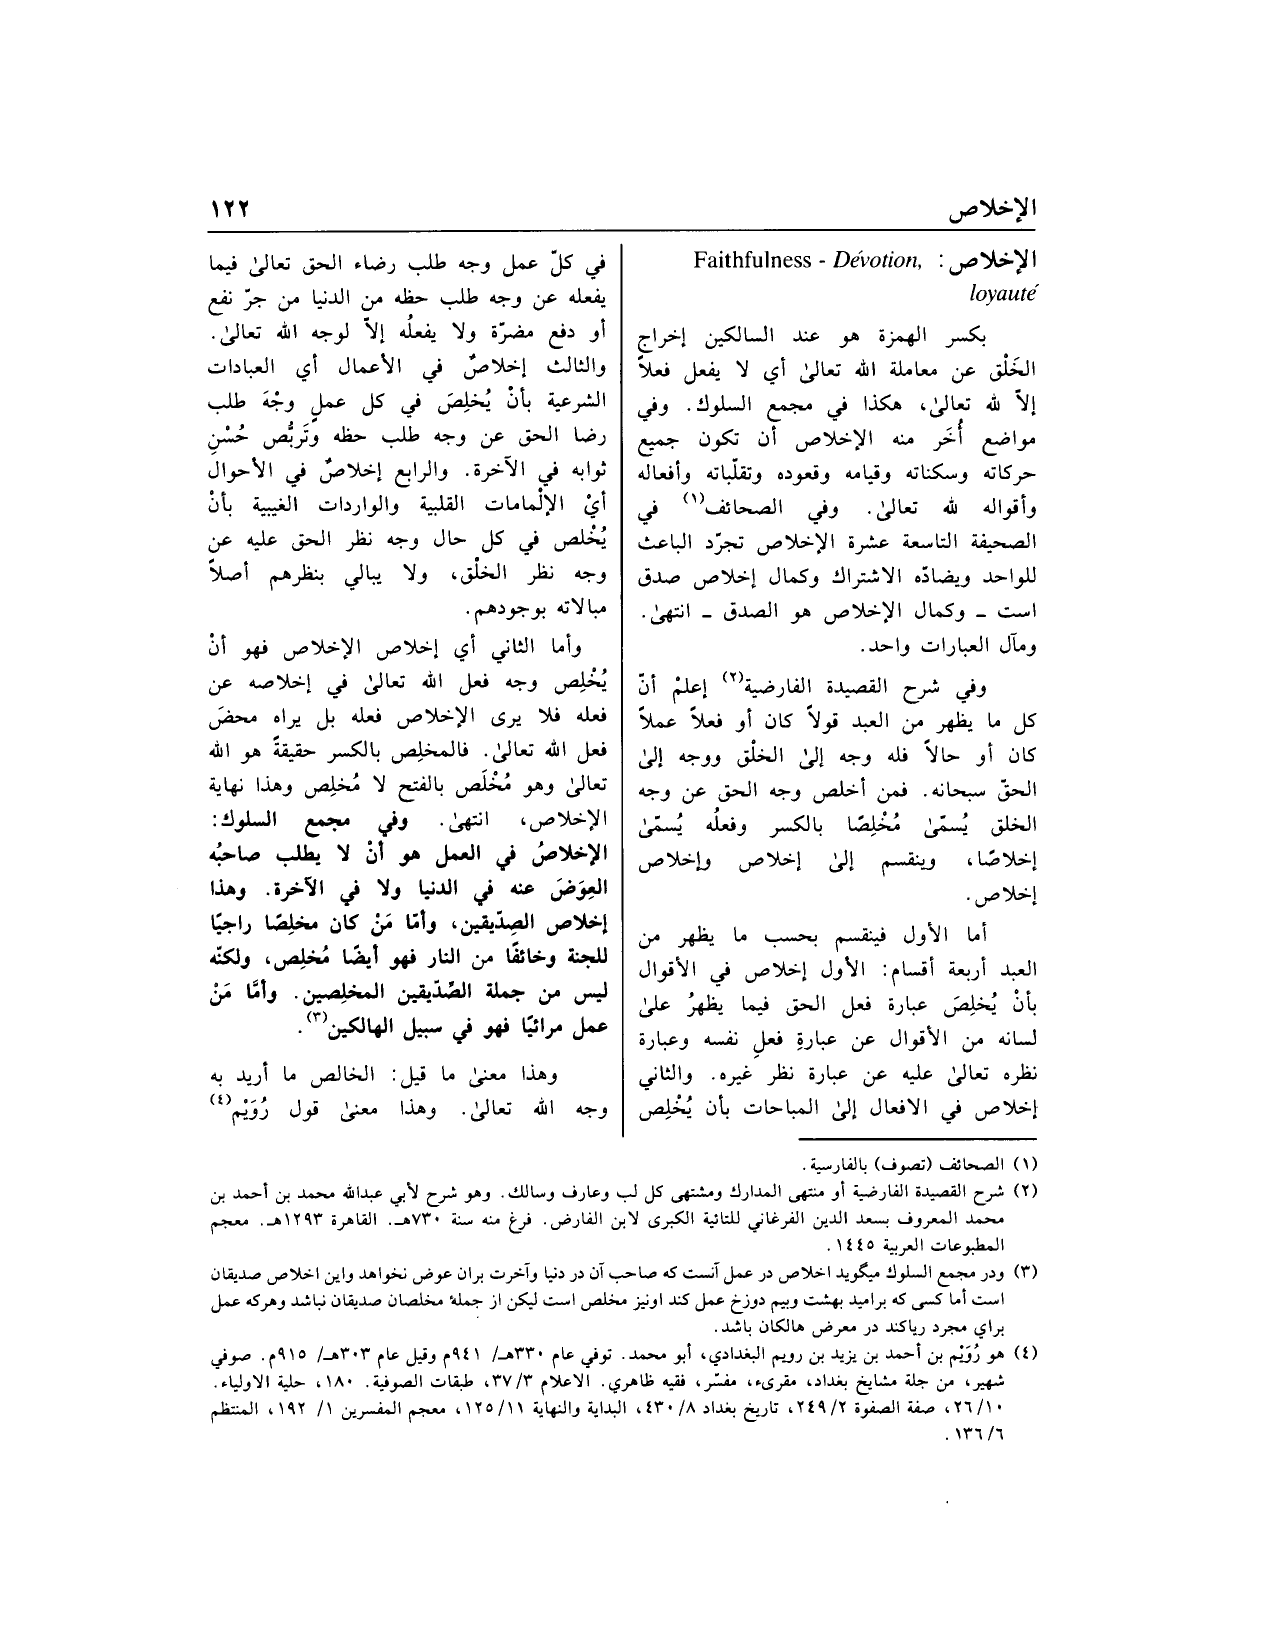 الإخلاص
١٢٢
الإخلاص : Faithfulness - Dévotion,
loyauté
بكسر الهمزة هو عند السالكين إخراج
الخَلْق عن معاملة الله تعالىٰ أي لا يفعل فعلاً
إلاّ لله تعالىٰ، هكذا في مجمع السلوك. وفي
مواضع أُخَر منه الإخلاص أن تكون جميع
حركاته وسكناته وقيامه وقعوده وتقلّباته وأفعاله
وأقواله لله تعالىٰ. وفي الصحائف(١) في
الصحيفة التاسعة عشرة الإخلاص تجرّد الباعث
للواحد ويضادّه الاشتراك وكمال إخلاص صدق
است ـ وكمال الإخلاص هو الصدق ـ انتهىٰ.
ومآل العبارات واحد.
وفي شرح القصيدة الفارضية(٢) إعلمْ أنّ
كل ما يظهر من العبد قولاً كان أو فعلاً عملاً
كان أو حالاً فله وجه إلىٰ الخلْق ووجه إلىٰ
الحقّ سبحانه. فمن أخلص وجه الحق عن وجه
الخلق يُسمّىٰ مُخْلِصًا بالكسر وفعلُه يُسمّىٰ
إخلاصًا، وينقسم إلىٰ إخلاص وإخلاص
إخلاص.
أما الأول فينقسم بحسب ما يظهر من
العبد أربعة أقسام: الأول إخلاص في الأقوال
بأنْ يُخلِصَ عبارة فعل الحق فيما يظهرُ علىٰ
لسانه من الأقوال عن عبارةِ فعلِ نفسه وعبارة
نظره تعالىٰ عليه عن عبارة نظر غيره. والثاني
إخلاص في الافعال إلىٰ المباحات بأن يُخْلِص
في كلّ عمل وجه طلب رضاء الحق تعالىٰ فيما
يفعله عن وجه طلب حظه من الدنيا من جرّ نفع
أو دفع مضرّة ولا يفعلُه إلاّ لوجه الله تعالىٰ.
والثالث إخلاصٌ في الأعمال أي العبادات
الشرعية بأنْ يُخلِصَ في كل عملٍ وجْهَ طلب
رضا الحق عن وجه طلب حظه وتَربُّص حُسْنِ
ثوابه في الآخرة. والرابع إخلاصٌ في الأحوال
أيْ الإلْمامات القلبية والواردات الغيبية بأنْ
يُخْلص في كل حال وجه نظر الحق عليه عن
وجه نظر الخلْق، ولا يبالي بنظرهم أصلاً
مبالاته بوجودهم.
وأما الثاني أي إخلاص الإخلاص فهو أنْ
يُخْلِص وجه فعل الله تعالىٰ في إخلاصه عن
فعله فلا يرى الإخلاص فعله بل يراه محضَ
فعل الله تعالىٰ. فالمخلِص بالكسر حقيقةً هو الله
تعالىٰ وهو مُخْلَص بالفتح لا مُخلِص وهذا نهاية
الإخلاص، انتهىٰ. وفي مجمع السلوك:
الإخلاصُ في العمل هو أنْ لا يطلب صاحبُه
العِوَضَ عنه في الدنيا ولا في الآخرة. وهذا
إخلاص الصِدّيقين، وأمّا مَنْ كان مخلِصًا راجيًا
للجنة وخائفًا من النار فهو أيضًا مُخلِص، ولكنّه
ليس من جملة الصِّدّيقين المخلِصين. وأمَّا مَنْ
عمل مرائيًا فهو في سبيل الهالكين(٣).
وهذا معنىٰ ما قيل: الخالص ما أريد به
وجه الله تعالىٰ. وهذا معنىٰ قول رُوَيْم(٤)
(١) الصحائف (تصوف) بالفارسية.
(٢) شرح القصيدة الفارضية أو منتهى المدارك ومشتهى كل لب وعارف وسالك. وهو شرح لأبي عبدالله محمد بن أحمد بن
محمد المعروف بسعد الدين الفرغاني للتائية الكبرى لابن الفارض. فرغ منه سنة ٧٣٠هـ. القاهرة ١٢٩٣هـ. معجم
المطبوعات العربية ١٤٤٥.
(٣) ودر مجمع السلوك ميگويد اخلاص در عمل آنست كه صاحب آن در دنيا وآخرت بران عوض نخواهد واين اخلاص صديقان
است أما كسى كه براميد بهشت وبيم دوزخ عمل كند اونيز مخلص است ليكن از جملهٔ مخلصان صديقان نباشد وهركه عمل
براي مجرد رياكند در معرض هالكان باشد.
(٤) هو رُوَيْم بن أحمد بن يزيد بن رويم البغدادي، أبو محمد. توفي عام ٣٣٠هـ/ ٩٤١م وقيل عام ٣٠٣هـ/ ٩١٥م. صوفي
شهير، من جلة مشايخ بغداد، مقرىء، مفسّر، فقيه ظاهري. الاعلام ٣/ ٣٧، طبقات الصوفية. ١٨٠، حلية الاولياء.
١٠/ ٢٦، صفة الصفوة ٢/ ٢٤٩، تاريخ بغداد ٨/ ٤٣٠، البداية والنهاية ١١/ ١٢٥، معجم المفسرين ١/ ١٩٢، المنتظم
٦/ ١٣٦.